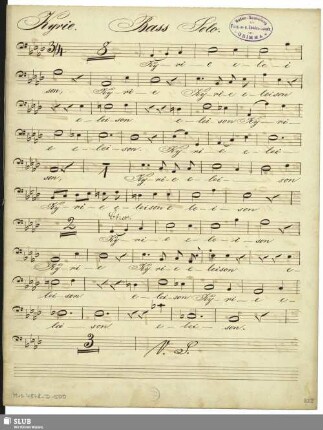 Kyrie. Bass Solo.
3/4 8
Ky-ri-e e-le-i
son, Ky-ri-e Ky-ri-e eleison
e-leison e-leison Ky-ri-
e e-leison. Ky-ri-e e-lei-
son, 7 Ky-ri-e e-lei-son
Ky-ri-e eleison e-lei-son
2 Ky-ri-e e-le-i-son
Ky-ri-e Ky-ri-e eleison e-
leison e-leison Ky-ri-e e-
lei-son e-lei-son.
3 V. S.
SLUB